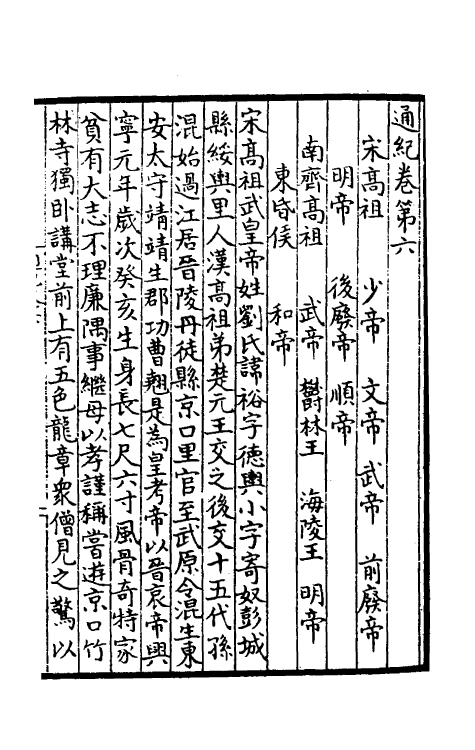 通紀卷第六
宋髙祖 少帝 文帝 武帝 前廢帝
明帝 後廢帝 順帝
南齊髙祖 武帝 欝林王 海陵王 明帝
東昏侯 和帝
宋髙祖武皇帝姓劉氏諱裕字德輿小字寄奴彭城
縣綏輿里人漢髙祖弟楚元王交之後交十五代孫
混始過江居晉陵丹徒縣京口里官至武原令混生東
安太守靖靖生郡功曹翹是為皇考帝以晉哀帝興
寧元年歲次癸亥生身長七尺六寸風骨奇特家
貧有大志不理廉隅事繼母以孝謹稱嘗遊京口竹
林寺獨卧講堂前上有五色龍章衆僧見之驚以